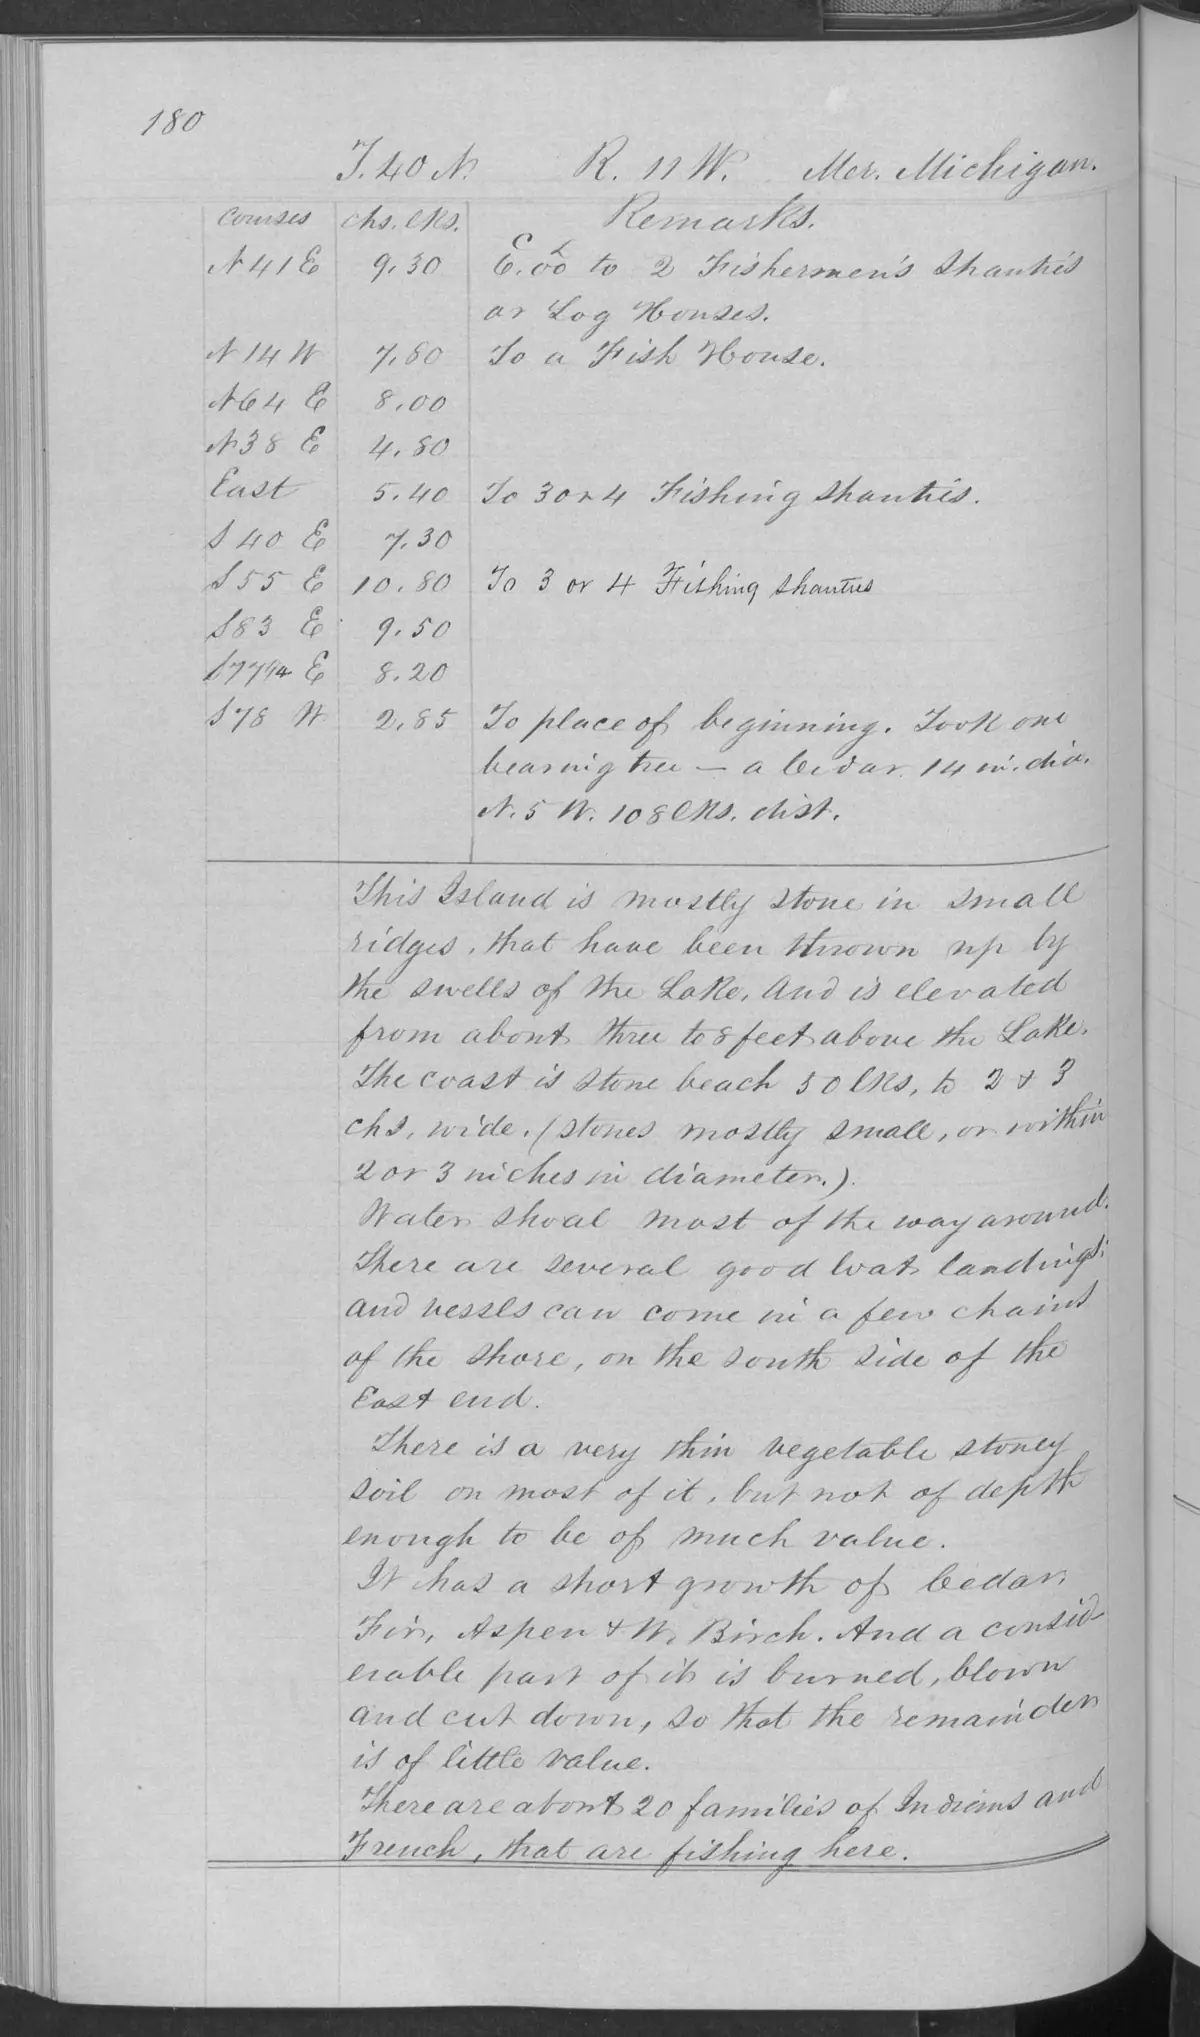 180
T. 40 N. R. 11 W. Mer. Michigan.
Courses chs. lks. Remarks.
N 41 E 9.30 to 2 Fishermen's Shanties
or Log Houses.
N 14 W 7.80 To a Fish House.
N 64 E 8.00
N 38 E 4.80
East 5.40 To 3 or 4 Fishing shanties.
S 40 E 7.30
S 55 E 10.80 To 3 or 4 Fishing shanties
S 83 E 9.50
S 77 1/4 E 8.20
S 78 W 2.85 To place of beginning. Took one
bearing tree — a Cedar 14 in. dia.
N. 5 W. 108 lks. dist.
This Island is mostly stone in small
ridges, that have been thrown up by
the swells of the Lake. And is elevated
from about three to 8 feet above the Lake.
The coast is stone beach 50 lks, to 2 & 3
chs. wide. (stones mostly small, or within
2 or 3 inches in diameter.)
Water shoal most of the way around.
There are several good boat landings;
and vessls can come in a few chains
of the shore, on the south side of the
East end.
There is a very thin vegetable stoney
soil on most of it, but not of depth
enough to be of much value.
It has a short growth of Cedar,
Fir, Aspen & W. Birch. And a consid-
erable part of it is burned, blown
and cut down, so that the remainder
is of little value.
There are about 20 families of Indians and
French, that are fishing here.